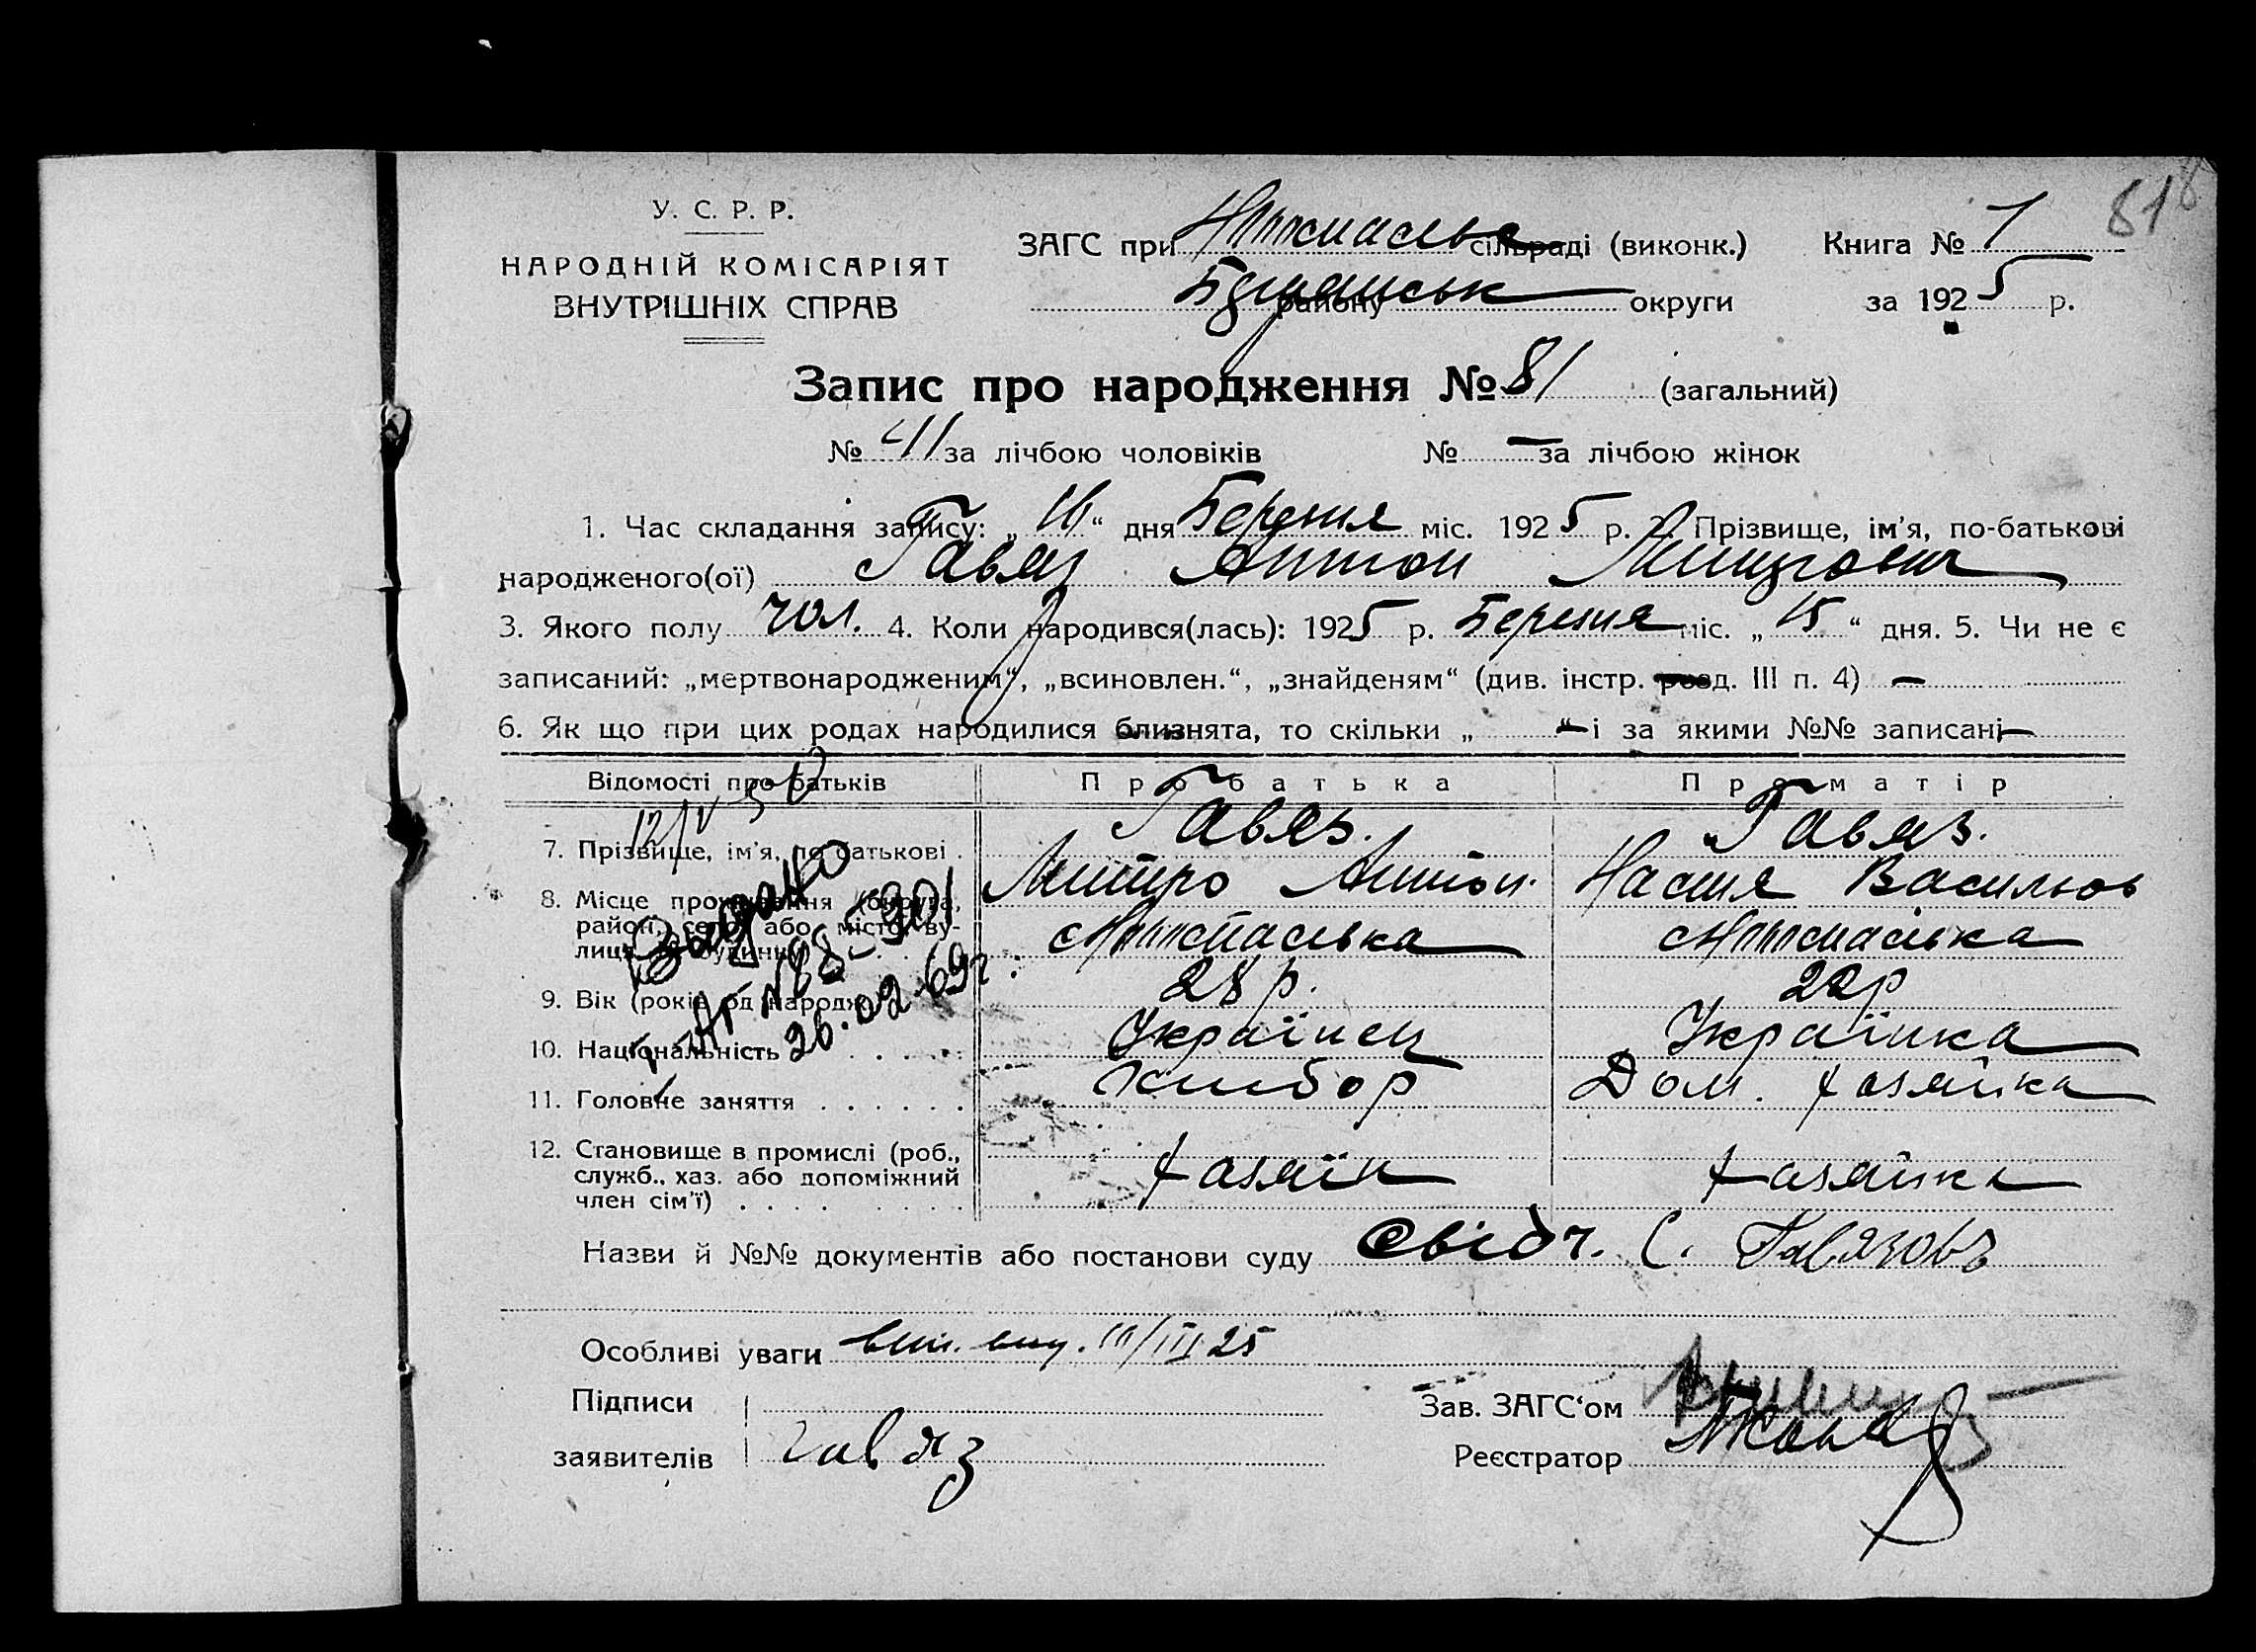 81
У. С. Р. Р.
НАРОДНІЙ КОМІСАРІЯТ
ВНУТРІШНІХ СПРАВ
ЗАГС при сільраді (виконк.) Книга № 1
району округи за 1925 р.
Запис про народження № 81 (загальний)
№ 41 за лічбою чоловіків № — за лічбою жінок
1. Час складання запису: „16“ дня Березня міс. 1925 р. 2. Прізвище, ім'я, по-батькові
народженого(ої) Гавяз Антон Митрович
3. Якого полу чол. 4. Коли народився(лась): 1925 р. Березня міс. „15“ дня. 5. Чи не є
записаний: „мертвонародженим“, „всиновлен.“, „знайденям“ (див. інстр. розд. III п. 4) —
6. Як що при цих родах народилися близнята, то скільки „ —“ і за якими №№ записані —
Відомості про батьків Про батька Про матір
7. Прізвище, ім'я, по батькові . Гавяз. Гавяз.
Митро Антон. Настя Васильов
8. Місце проживання (округа,
район, село, або місто, ву-
лиця, будинк)
9. Вік (років од народж.) 28 р. 22 р
10. Національність Українец Українка
11. Головне заняття . . . . . . Хлибор Дом. хазяйка
12. Становище в промислі (роб.,
служб., хаз. або допоміжний
член сім'ї) . . . . Хазяїн Хазяйка
Выдано
26.02.69г.
Назви й №№ документів або постанови суду Свідч. С. Гавязовъ
Особливі уваги /III 25
Підписи
заявителів Гавяз
Зав. ЗАГС'ом
Реєстратор